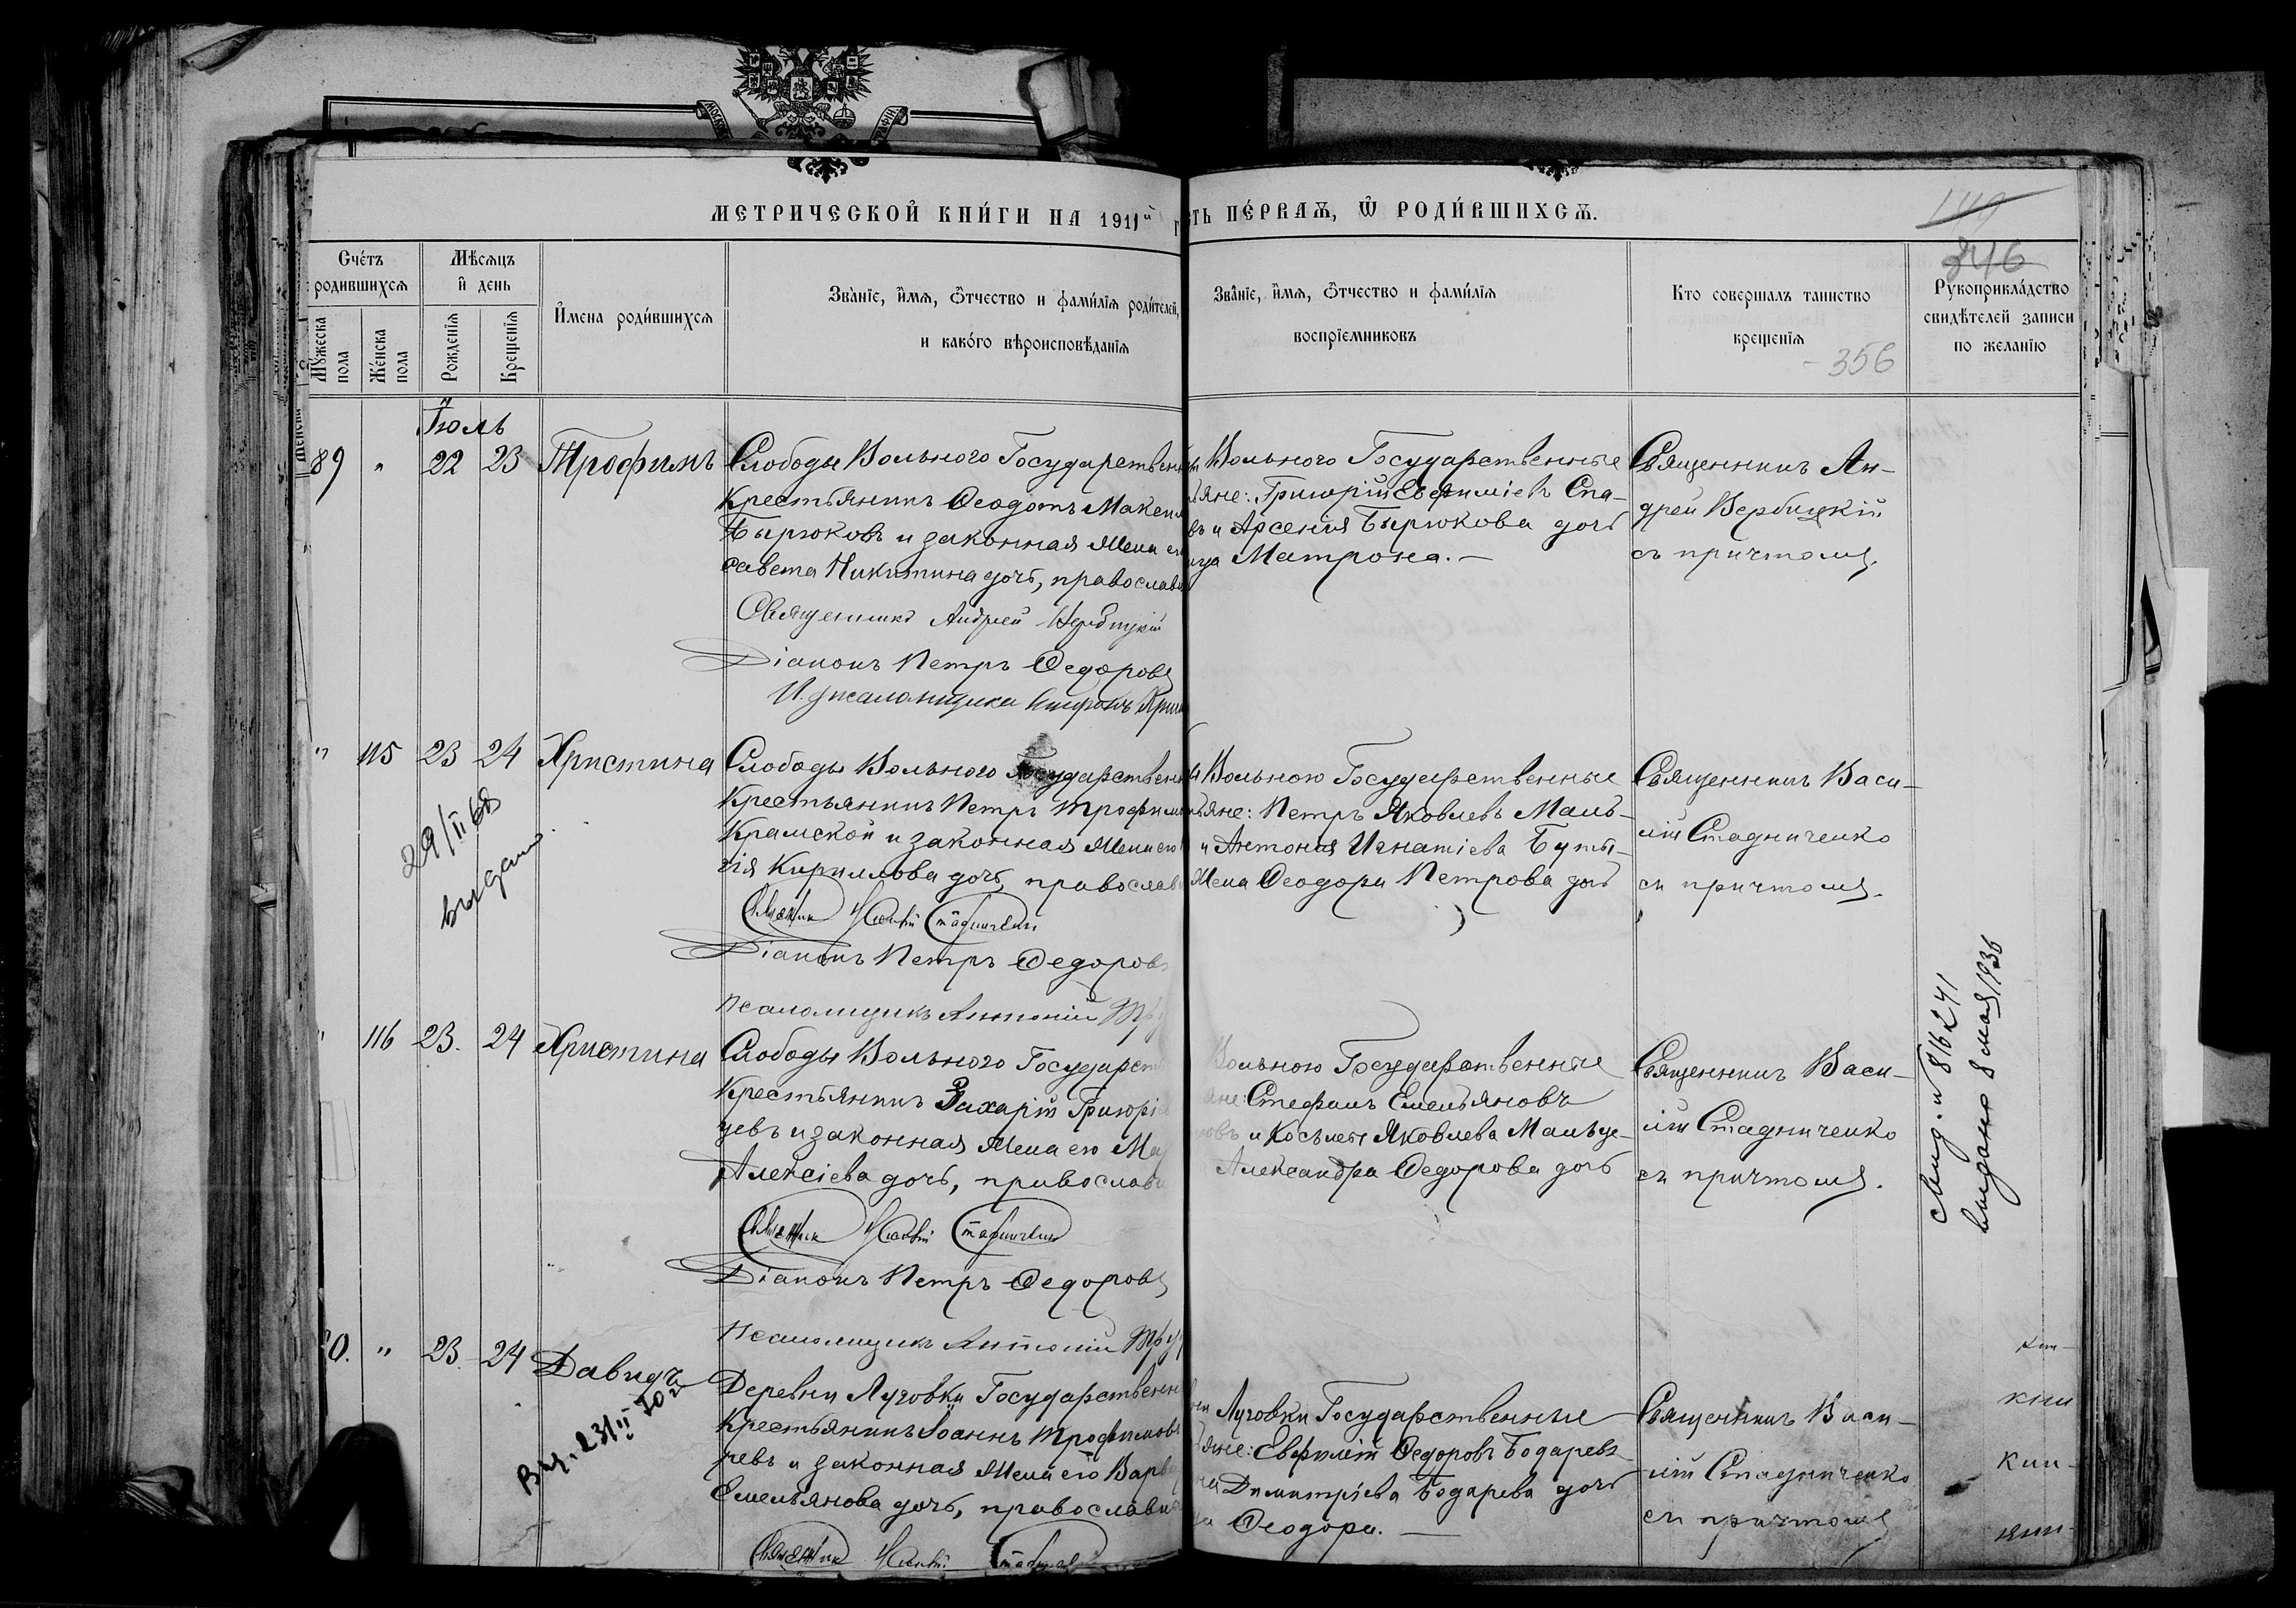 МЕТРИЧЕСКОЙ КНИ́ГИ НА 1911й
СТЬ ПЕ́РВАѦ, Ѽ РОДИ́ВШИХСѦ.
149
346
Сче́тъ родившихсѧ
Мѣсѧцъ и҆ день
И҆мена роди́вшихсѧ
Зва̀нїе, и҆мѧ, ѻ҆тчество и фами́лїѧ роди́телей,
и како́го вѣроисповѣданїѧ
Зва̀нїе, и҆мѧ, ѻ҆тчество и фами́лїѧ
воспрїемниковъ
Кто совершалъ таинство
крещенїѧ
- 356
Рукоприкла́дство
свидѣтелей записи
по желанїю
Му́жеска пола
Же́нска пола
Рожденїѧ
Крещенїѧ
Іюль
89 " 22 23 Трофимъ
Слободы Вольного Государствен
Крестьянинъ Ѳеодотъ Макси
Бырюковъ и законная жена е
савета Никитина дочь, православ
Священникъ Андрей Вербицкій
Діаконъ Петръ Ѳедоровъ
И. д. псаломщика
Вольного Государственные
яне: Григорій Евфиміевъ Спа-
въ и Арсенія Бырюкова дочь
ица Матрона. —
Священникъ Ан-
дрей Вербицкій
съ причтомъ.
" 115 23 24 Христина
29/II 68
выдано
Слободы Вольного Государствен
Крестьянинъ Петръ Трофим
Крамской и законная жена его
сія Кириллова дочь, православ
Священник Василій Стадниченко
Діаконъ Петръ Ѳедоровъ
Псаломщикъ Антоній
Вольного Государственные
ьяне: Петръ Яковлевъ Маль-
и Антонія Игнатіева Буты-
жена Ѳеодора Петрова дочь
Священникъ Васи-
лій Стадниченко
съ причтомъ.
" 116 23. 24 Христина
Слободы Вольного Государст
Крестьянинъ Захарій Григорі
цевъ и законная жена его Ма
Алексіева дочь, православ
Священник Василій Стадниченко
Діаконъ Петръ Ѳедоровъ
Псаломщикъ Антоній
Вольного Государственные
яне: Стефанъ Емельяновъ
овъ и Косьмы Яковлева Мальце-
Александра Ѳедорова дочь
Священникъ Васи-
лій Стадниченко
съ причтомъ.
Свид. № 816241
выдано 8 мая 1936
0. " 23. 24 Давидъ
Выд. 23/II 70 г
Деревни Луговки Государственн
Крестьянинъ Іоаннъ Трофимовъ
чевъ и законная жена его Варв
Емельянова дочь, православн
Священник Василій
Луговки Государственные
яне: Евфимій Ѳедоровъ Бодаревъ
Димитріева Бодарева дочь
Ѳеодора. —
Священникъ Васи-
лій Стадниченко
съ причтомъ